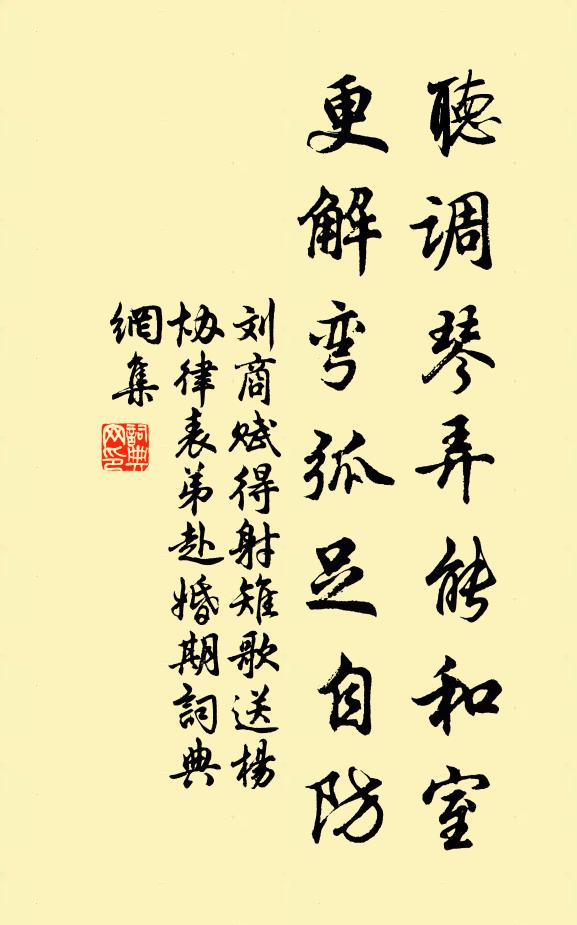 聽调琴弄能和室
更解弯弧足自防
刘商赋得射雉歌送楊
协律表弟赴婚期詞典
網集
詞典
网印